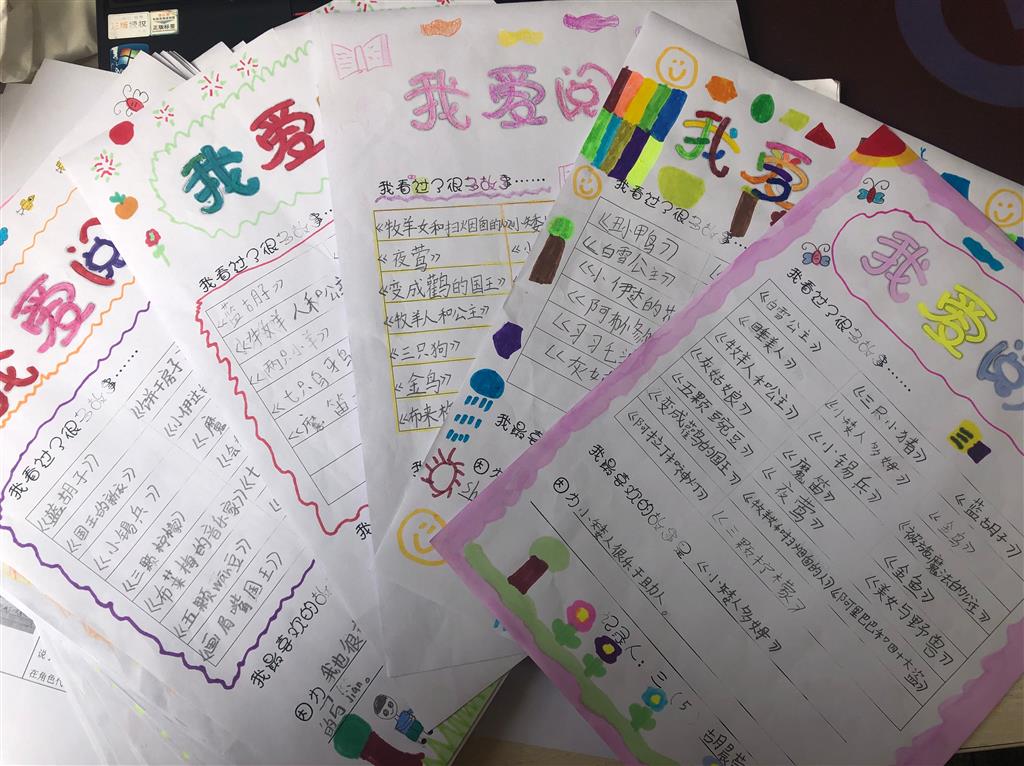 正版授权
我爱阅
我看过了很多故事……
《蓝胡子》
《饼干房子
《国王的新衣》
《小伊达
《小锡兵》
《魔
《三颗柠檬》
《布莱梅的音乐家》
《五颗wān豆》
《画眉嘴国王》
我最喜欢的
因为
我也很
的与jian。
我爱
我看过了很多故事
《蓝胡子》
《牧羊人和公主
《两只小羊》
《魔笛
我
我爱阅
我看过了很多故事……
《牧羊女和扫烟囱的人》
《夜莺》
《变成鹳鸟的国王》
《牧羊人和公主》
《三只狗》
《金鸟》
《布来梅
我
因为
我爱
我看过了很多故事……
《丑小鸭》
《白雪公主》
《小伊达的花
《阿里
《灰姑
我最喜
因
我爱阅
我看过了很多故事……
《白雪公主》
《三只小猪》
《蓝胡子》
《睡美人》
《小矮人多姆》
《金鸟》
《牧羊人和公主》
《小锡兵》
《被施魔法的公主》
《灰姑娘》
《魔笛》
《金鱼》
《五颗豌豆》
《夜莺》
《美女与野兽》
《变成鹳鸟的国王》
《牧羊女和扫烟囱的人》
《阿里巴巴和四十大盗》
《阿拉丁和神灯》
《三颗柠檬》
我最喜欢的故事是
《小矮人多姆》
因为
小矮人很乐于助人。
记录人：三（5）
胡晨
说，
在角色代